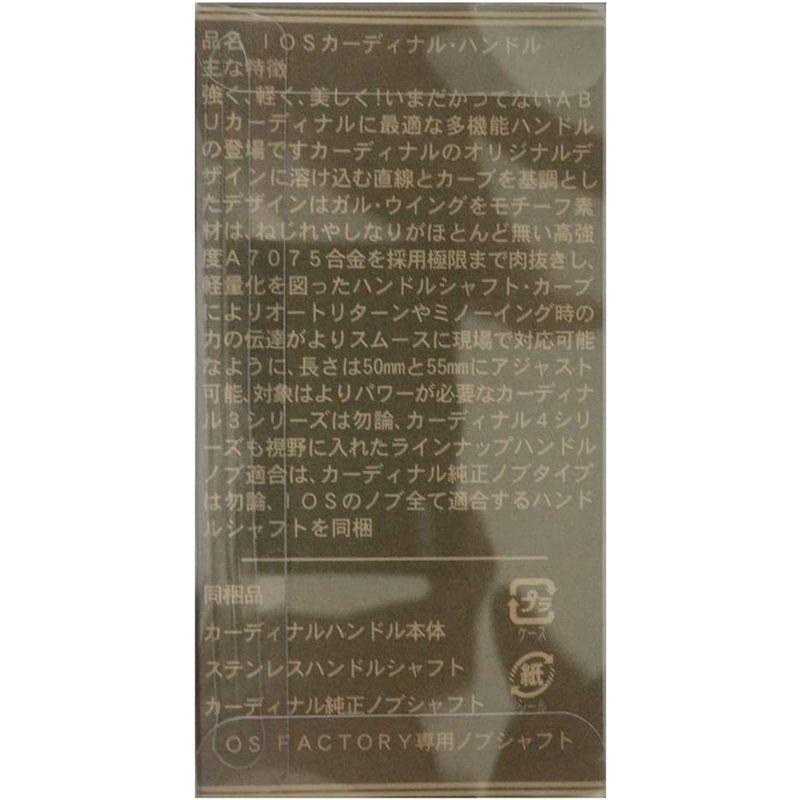 品名 IOSカーディナル・ハンドル
主な特徴
強く、軽く、美しく!いまだかつてないAB
Uカーディナルに最適な多機能ハンドル
の登場ですカーディナルのオリジナルデ
ザインに溶け込む直線とカーブを基調とし
たデザインはガル・ウイングをモチーフ素
材は、ねじれやしなりがほとんど無い高強
度A7075合金を採用極限まで肉抜きし、
軽量化を図ったハンドルシャフト・カーブ
によりオートリターンやミノーイング時の
力の伝達がよりスムースに現場で対応可能
なように、長さは50mmと55mmにアジャスト
可能、対象はよりパワーが必要なカーディナ
ル3シリーズは勿論、カーディナル4シリ
ーズも視野に入れたラインナップハンドル
ノブ適合は、カーディナル純正ノブタイプ
は勿論、IOSのノブ全て適合するハンド
ルシャフトを同梱
同梱品
カーディナルハンドル本体
ステンレスハンドルシャフト
カーディナル純正ノブシャフト
IOS FACTORY専用ノブシャフト
プラ
ケース
紙
シール